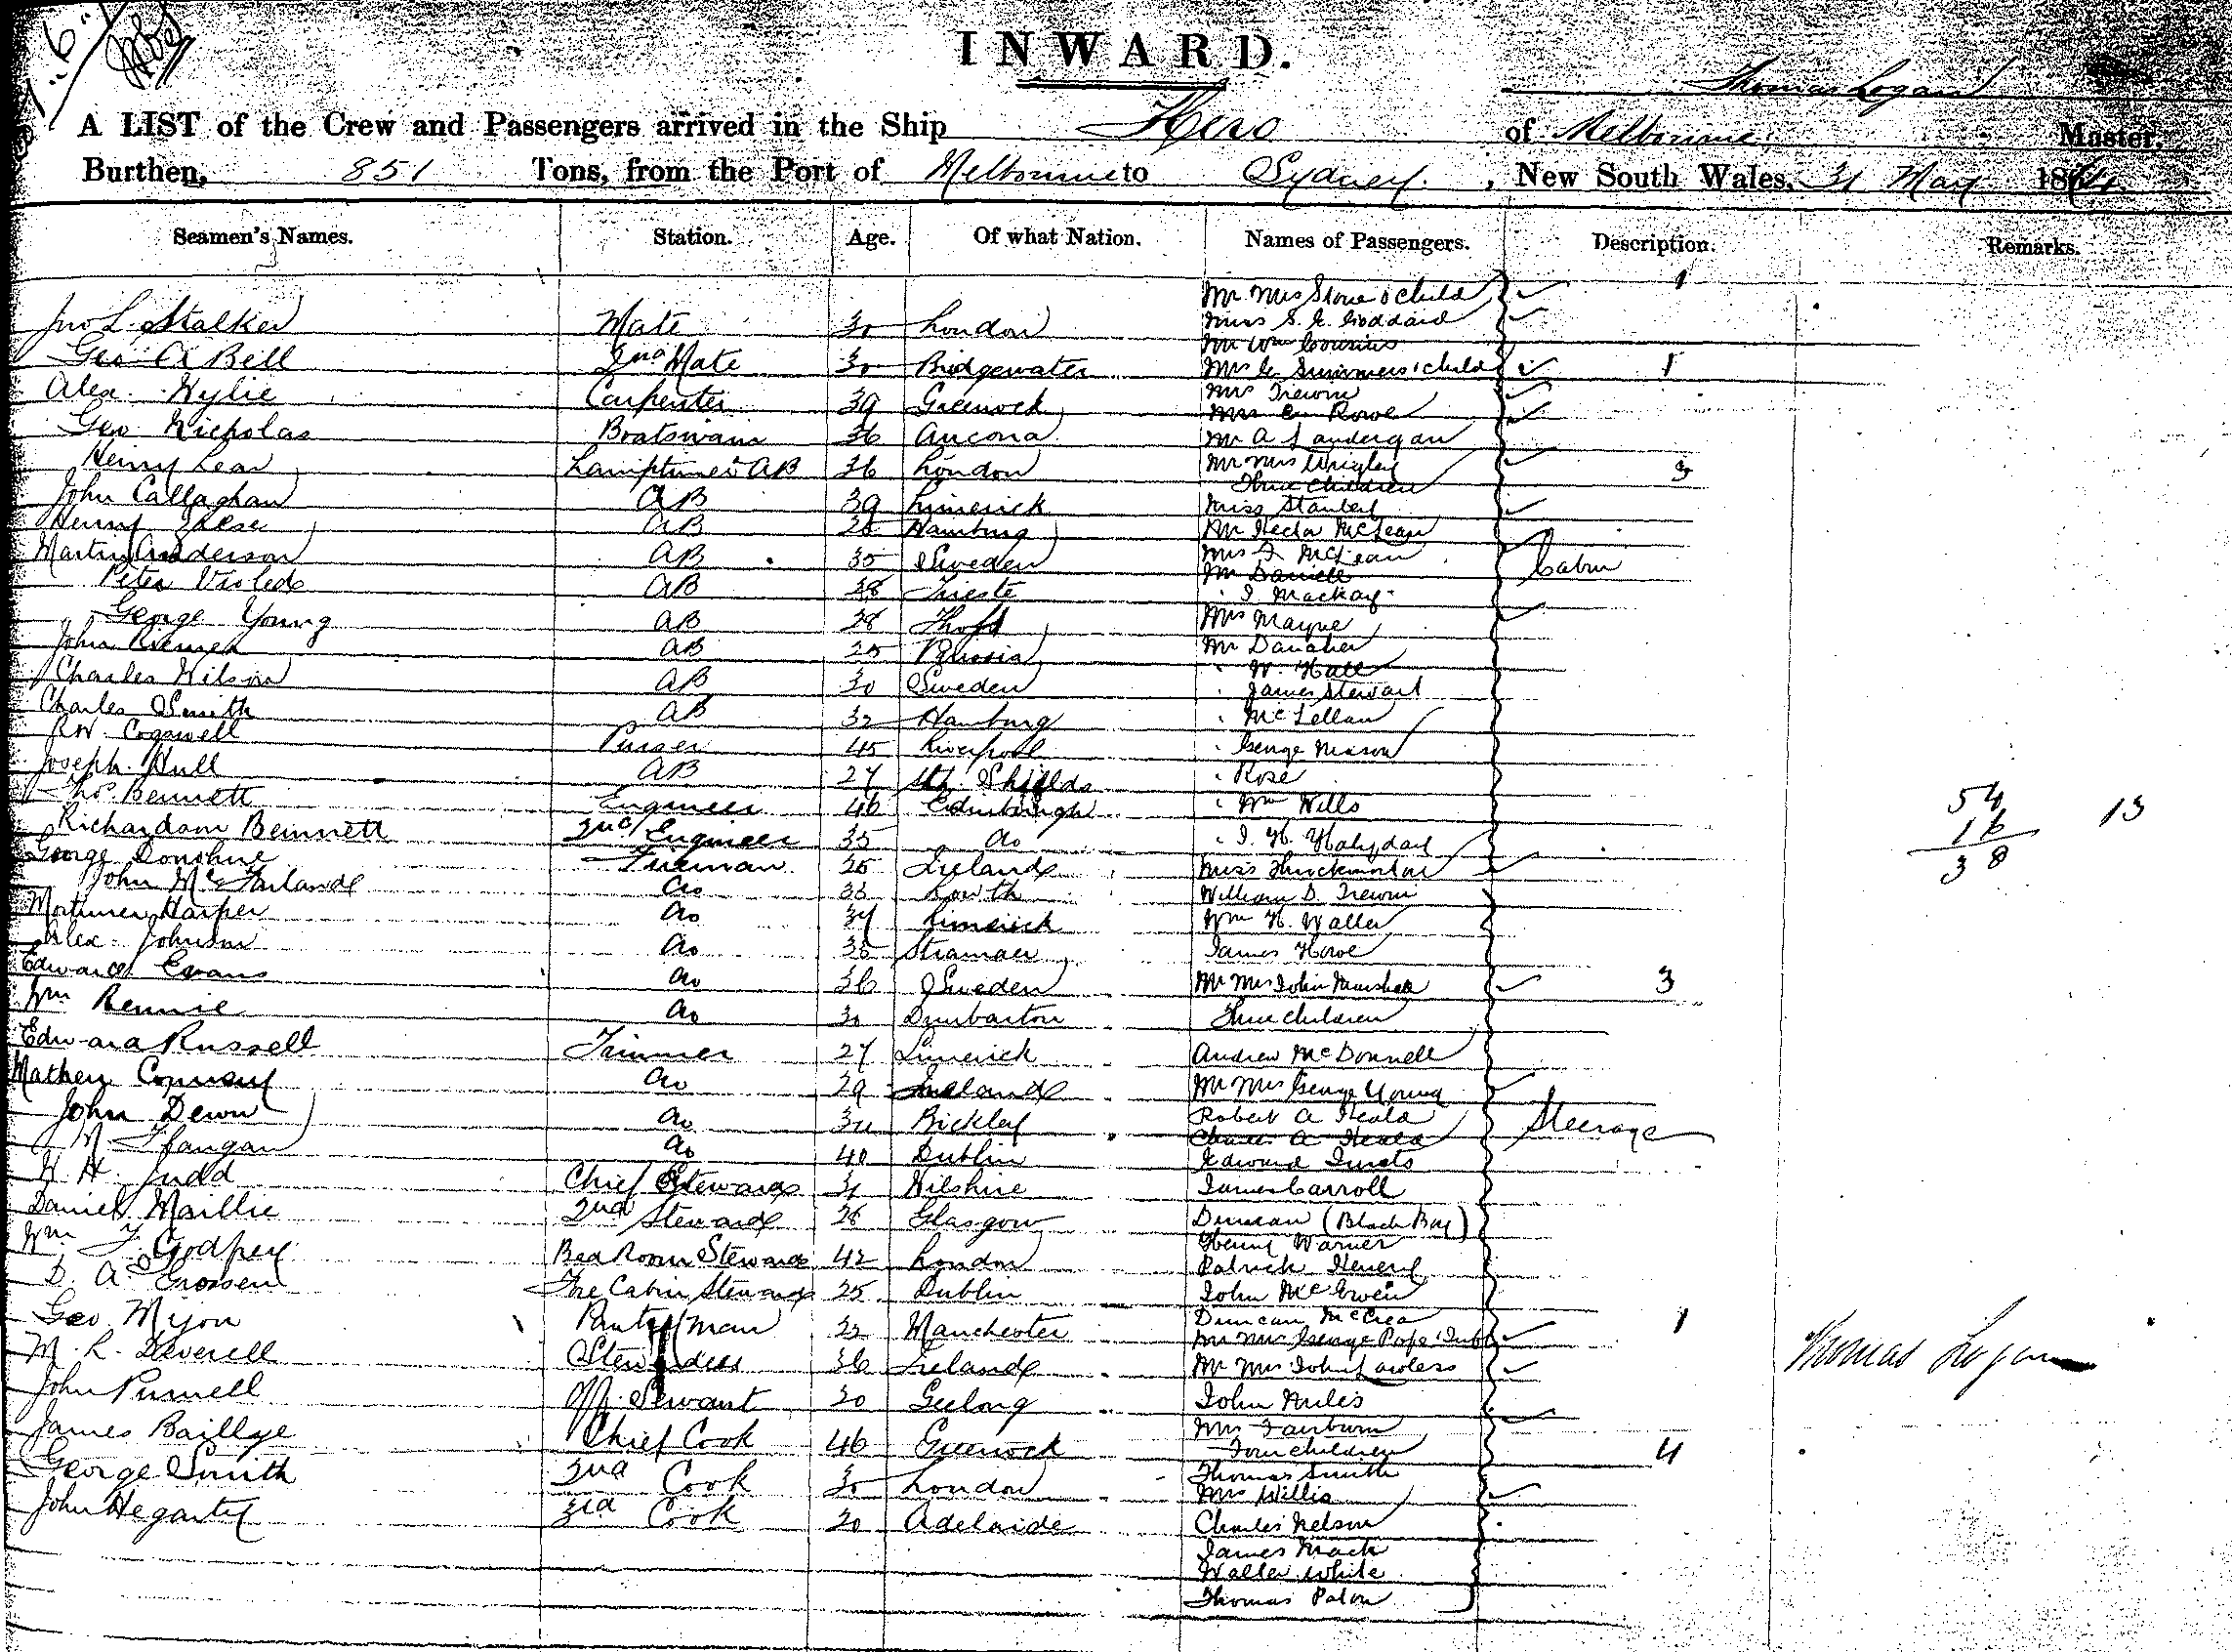 INWARD.
Thomas Logan
A LIST of the Crew and Passengers arrived in the Ship Hero of Melbourne Master,
Burthen, 851 Tons, from the Port of Melbourne to Sydney, New South Wales, 31 May 186
Seamen's Names. Station. Age. Of what Nation. Names of Passengers. Description. Remarks.
Mr Mrs Stone & Child 1
Jno L. Stalker Mate 30 London Miss S. E. Goddard
Mr Wm Cousins
Geo A Bell 2nd Mate 30 Bridgewater Mrs Summers 1 Child 1
Alex. Wylie Carpenter 39 Greenock Mrs Trewin
Rowe
Geo Nicholas Boatswain 36 Ancona Mr A Landergan
Henry Lear Lamptrimer AB 36 London Mr Mrs Wrigley
Three Children 3
John Callaghan AB 39 Limerick Miss Stanley
Henry AB Hamburg Mr Hector McLean
Martin Anderson AB 35 Sweden Mrs McLean
Peter AB 28 Trieste Mr Daniell Cabin
I. Mackay
George Young AB 28 Mrs Mayne
John AB 25 Mr Danaher
W. Hall
Charles Wilson AB 30 Sweden James Stewart
Charles Smith AB 32 Hamburg McLellan
R W. Cogswell Purser 45 Liverpool George Mason
Joseph Hull AB 27 Sth. Shields Rose
Thos. Bennett Engineer 46 Edinburgh Wm Wills 54 13
Richardson Bennett 2nd Engineer 35 do I. H. Halyday 16
George Donohue Fireman 25 Ireland Miss Throckmorton 38
John McFarland do Louth William D. Trewin
Mortimer Harper do 34 Limerick Wm H. Waller
Alex. Johnson do 35 Stranraer James Howe
Edward Evans do 36 Sweden Mr Mrs John Marshall 3
Wm Rennie do 30 Dumbarton Three Children
Edward Russell Trimmer 27 Limerick Andrew McDonnell
Mathew Conway do 29 Ireland Mr Mrs George Young
John Dewn do 34 Bickley Robert A Heald Steerage
Charles A Heald
M. Flangan do 40 Dublin Edward
H. H. Judd Chief Steward 31 Wilshire James Carroll
Daniel Maillie 2nd Steward 28 Glasgow Duncan (Black Boy)
Henry Warner
Wm J Godfrey Bed Room Steward 42 London Patrick Heney
D. A. Crossen Fre Cabin Steward 25 Dublin John McEwen
Duncan McCrea
Geo Myon Pantryman 32 Manchester Mr Mrs George Pope 1
M. L. Deverell Stewardess 36 Ireland Mr Mrs John Lawless Thomas Logan
John Purnell Off. Servant 20 Geelong John Miles
Mrs Fairburn
James Baillye Chief Cook 46 Greenock Four children 4
George Smith 2nd Cook 30 London Thomas Smith
Mrs Willis
John Hegarty 3rd Cook 20 Adelaide Charles Nelson
James Mack
Walter White
Thomas Paton